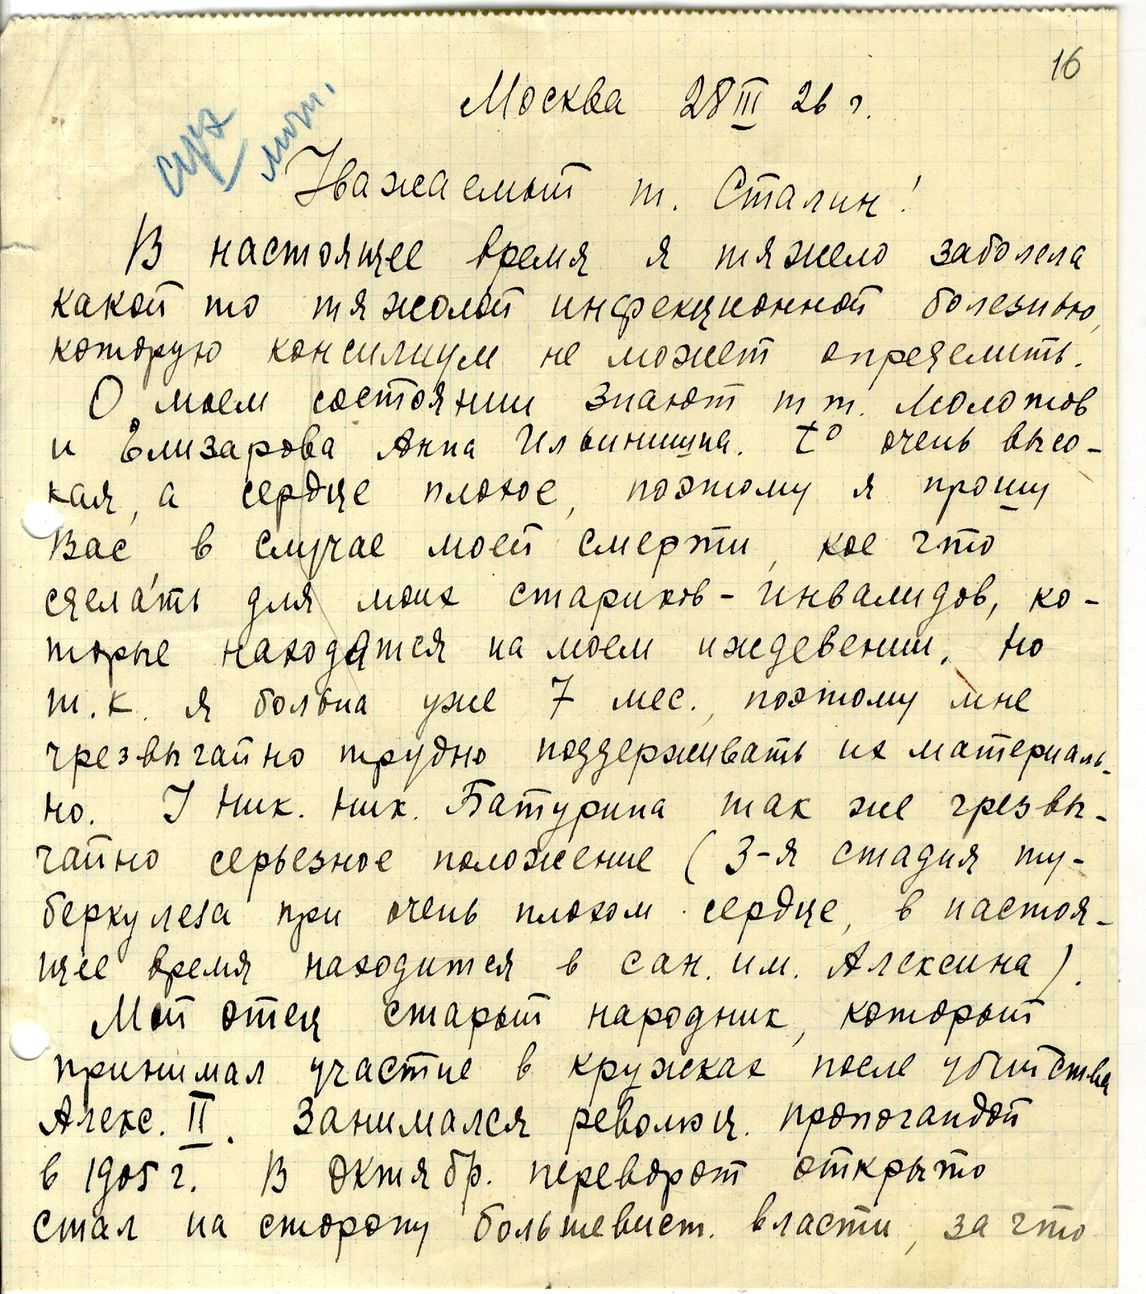 16
Москва 28 III 26 г.
арх
Уважаемый т. Сталин!
В настоящее время я тяжело заболела
какой то тяжолой инфекционной болезнью,
которую консилиум не может определить.
О моем состоянии знают т.т. Молотов
и Елизарова Анна Ильинишна. t° очень высо-
кая, а сердце плохое, поэтому я прошу
Вас в случае моей смерти кое что
сделать для моих стариков-инвалидов, ко-
торые находятся на моем иждевении, но
т.к. я больна уже 7 мес., поэтому мне
чрезвычайно трудно поддерживать их материаль-
но. У Ник. Ник. Батурина так же чрезвы-
чайно серьезное положение (3-я стадия ту-
беркулеза при очень плохом сердце, в настоя-
щее время находится в сан. им. Алексина).
Мой отец старый народник, который
принимал участие в кружках после убийства
Алекс. II. Занимался революц. пропогандой
в 1905 г. В октябр. переворот открыто
стал на сторону большевист. власти, за что